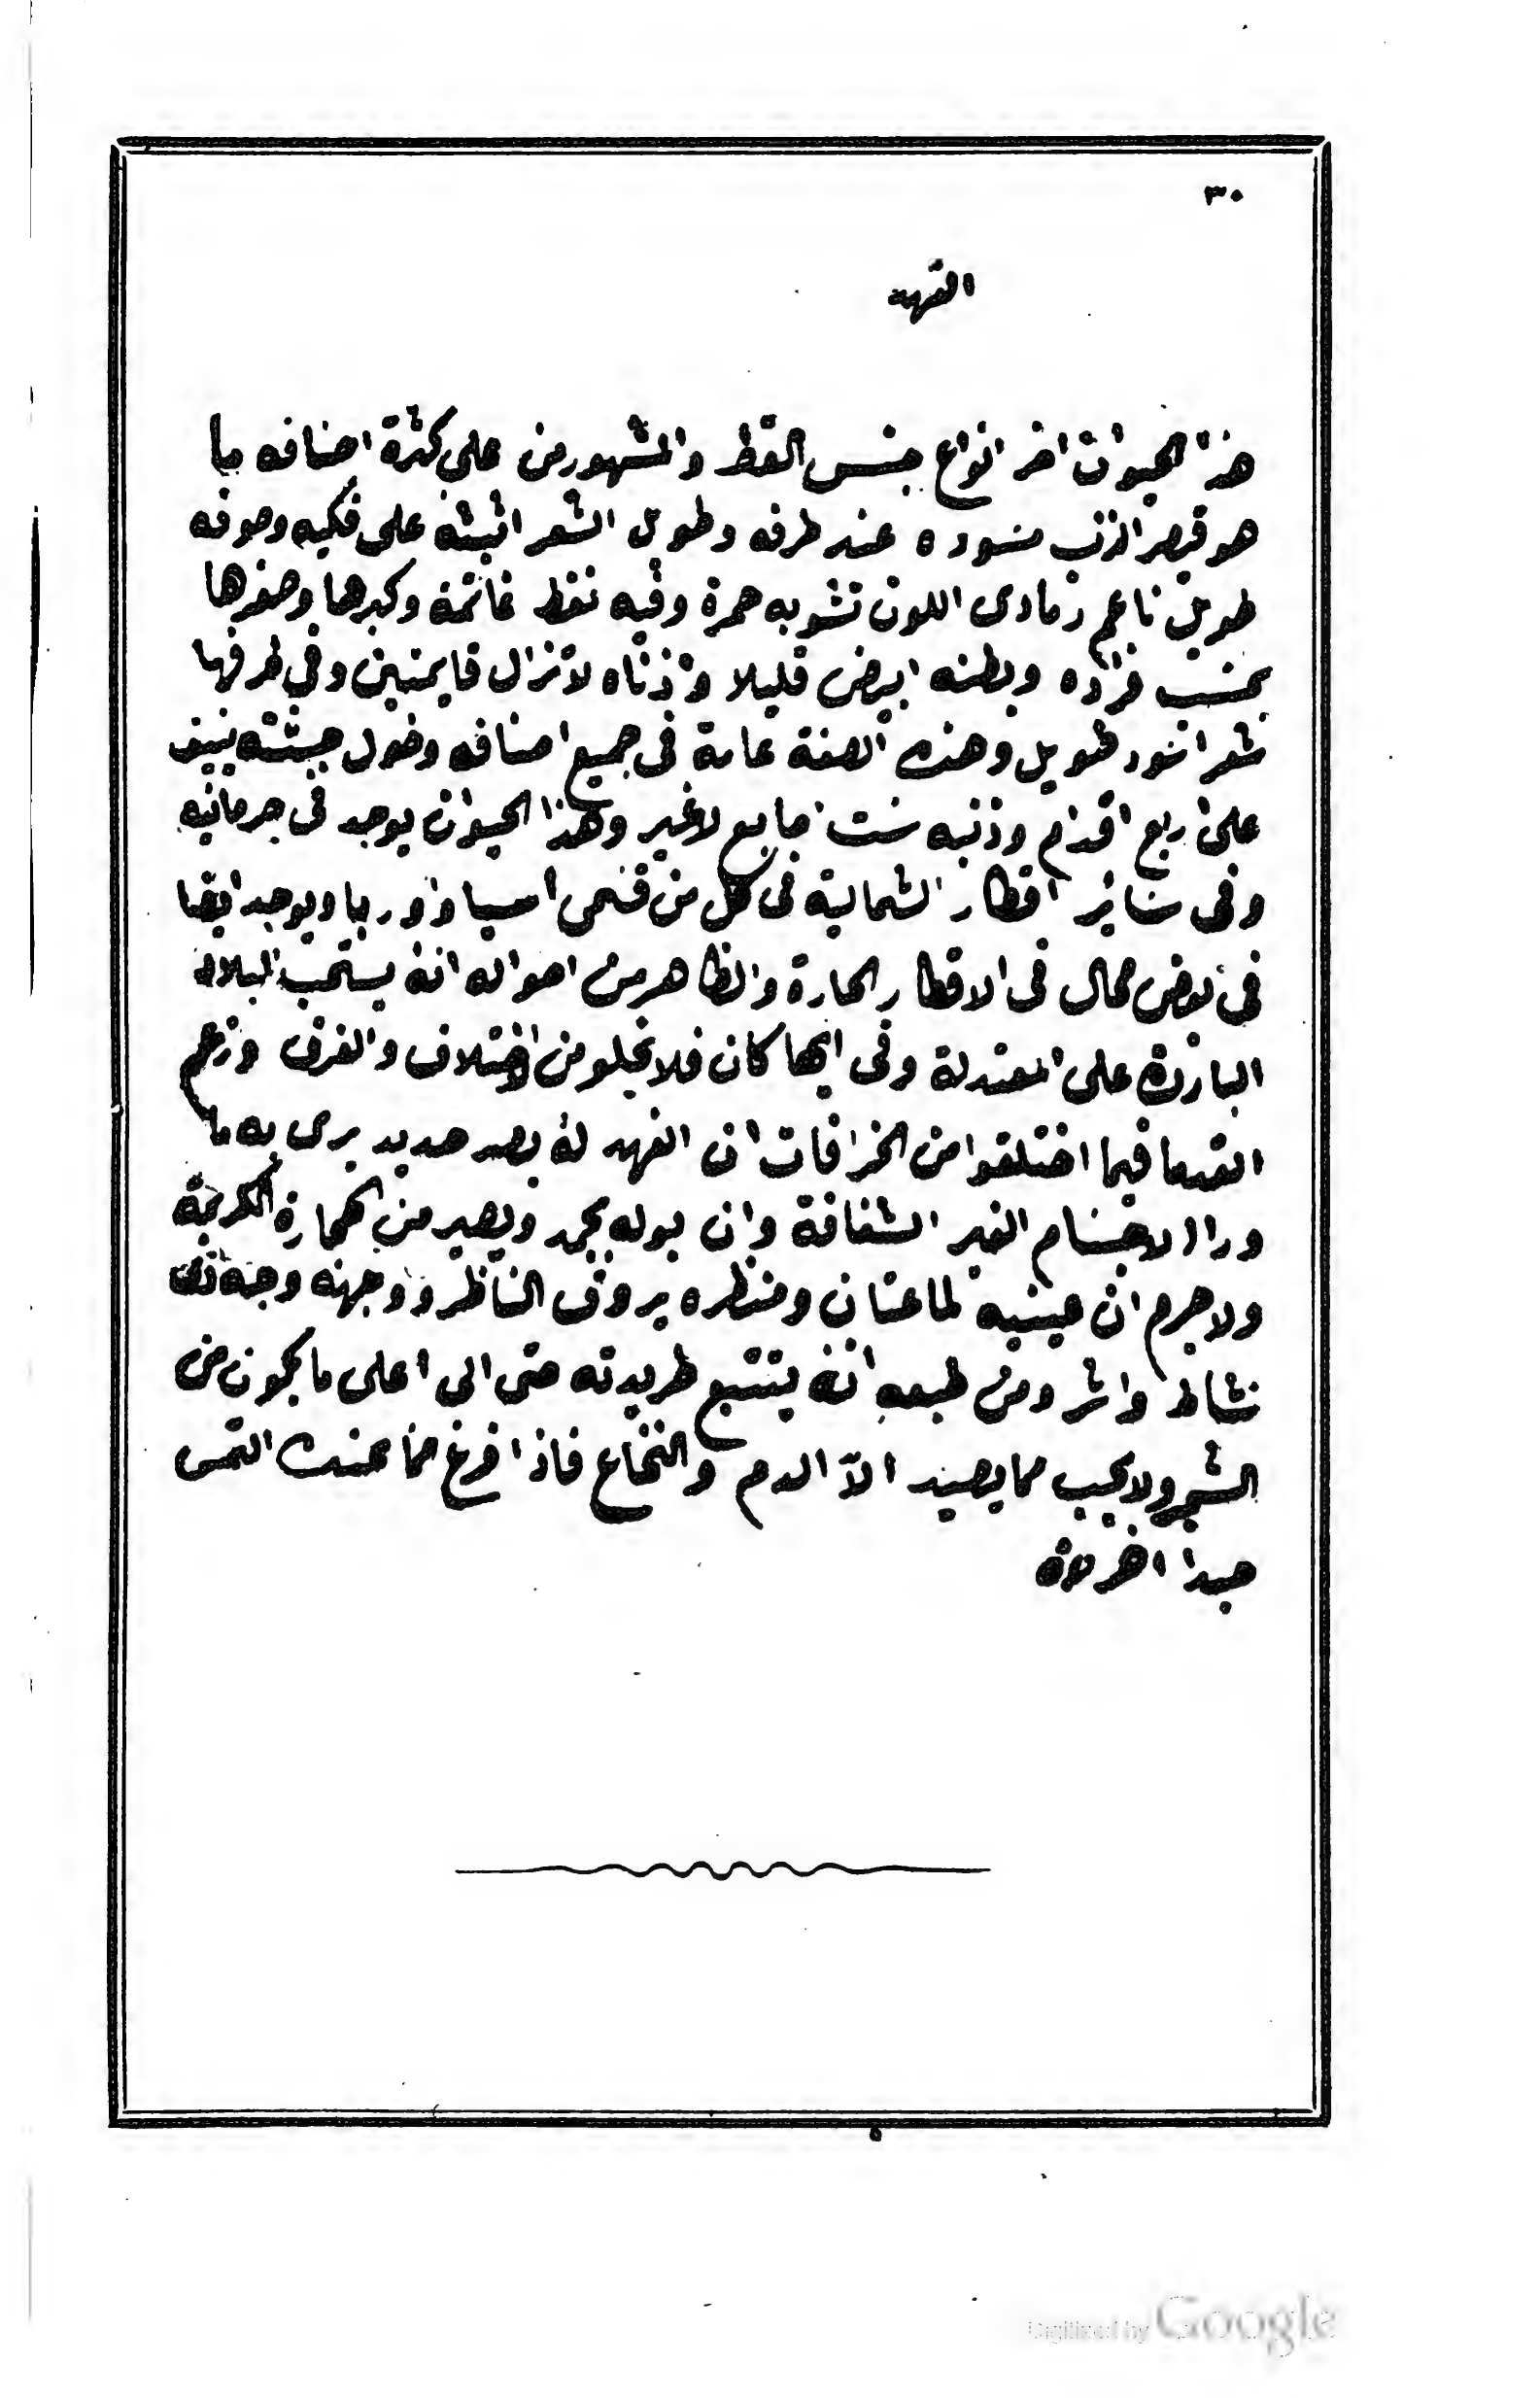 ٣٠
الفهد
هذا الحيوان اخر انواع جنس القط والمشهور من على كثرة اصنافه بها
هو قصر الذنب مسوده عند طرفه وطويل الشعر اثيثه على فكيه وصوفه
طويل ناعم رمادى اللون تشوبه حمرة وفيه نقط غاتمة وكبرها وصغرها
بحسب فراده وبطنه ابيض قليلا واذناه لا تزال قايمتين وفي طرفها
شعر اسود طويل وهذه الصفة عامة فى جميع اصنافه وطول جثته ينيف
على اربع اقدام وذنبه ست اصابع لاغير وهذا الحيوان يوجد فى جرمانيه
وفى ساير اقطار الشمالية فى كل من قسمى اسيا واوربا ويوجد ايضا
فى بعض محال فى الاقطار الحارة والظاهر من احواله انه يستحب البلاد
الباردة على المعتدلة وفى ايها كان فلا يخلو من اختلاف والفرق وزعم
القدما فيما اختلقوا من الخرافات ان الفهد له بصر حديد يرى به ما
ورا الاجسام الغير الشفافة وان بوله يجمد ويصير من الحجارة الكريمة
ولا جرم ان عينيه لماعتان ومنظره يروق الناظر ووجهه وجه ذى
نشاط واشر ومن طبعه انه يتتبع طريدته حتى الى اعلى ما يكون من
الشجر ولا يحب مما يصيد الا الدم والنخاع فاذا فرغ مما عنده التمس
صيدا اخر لاه